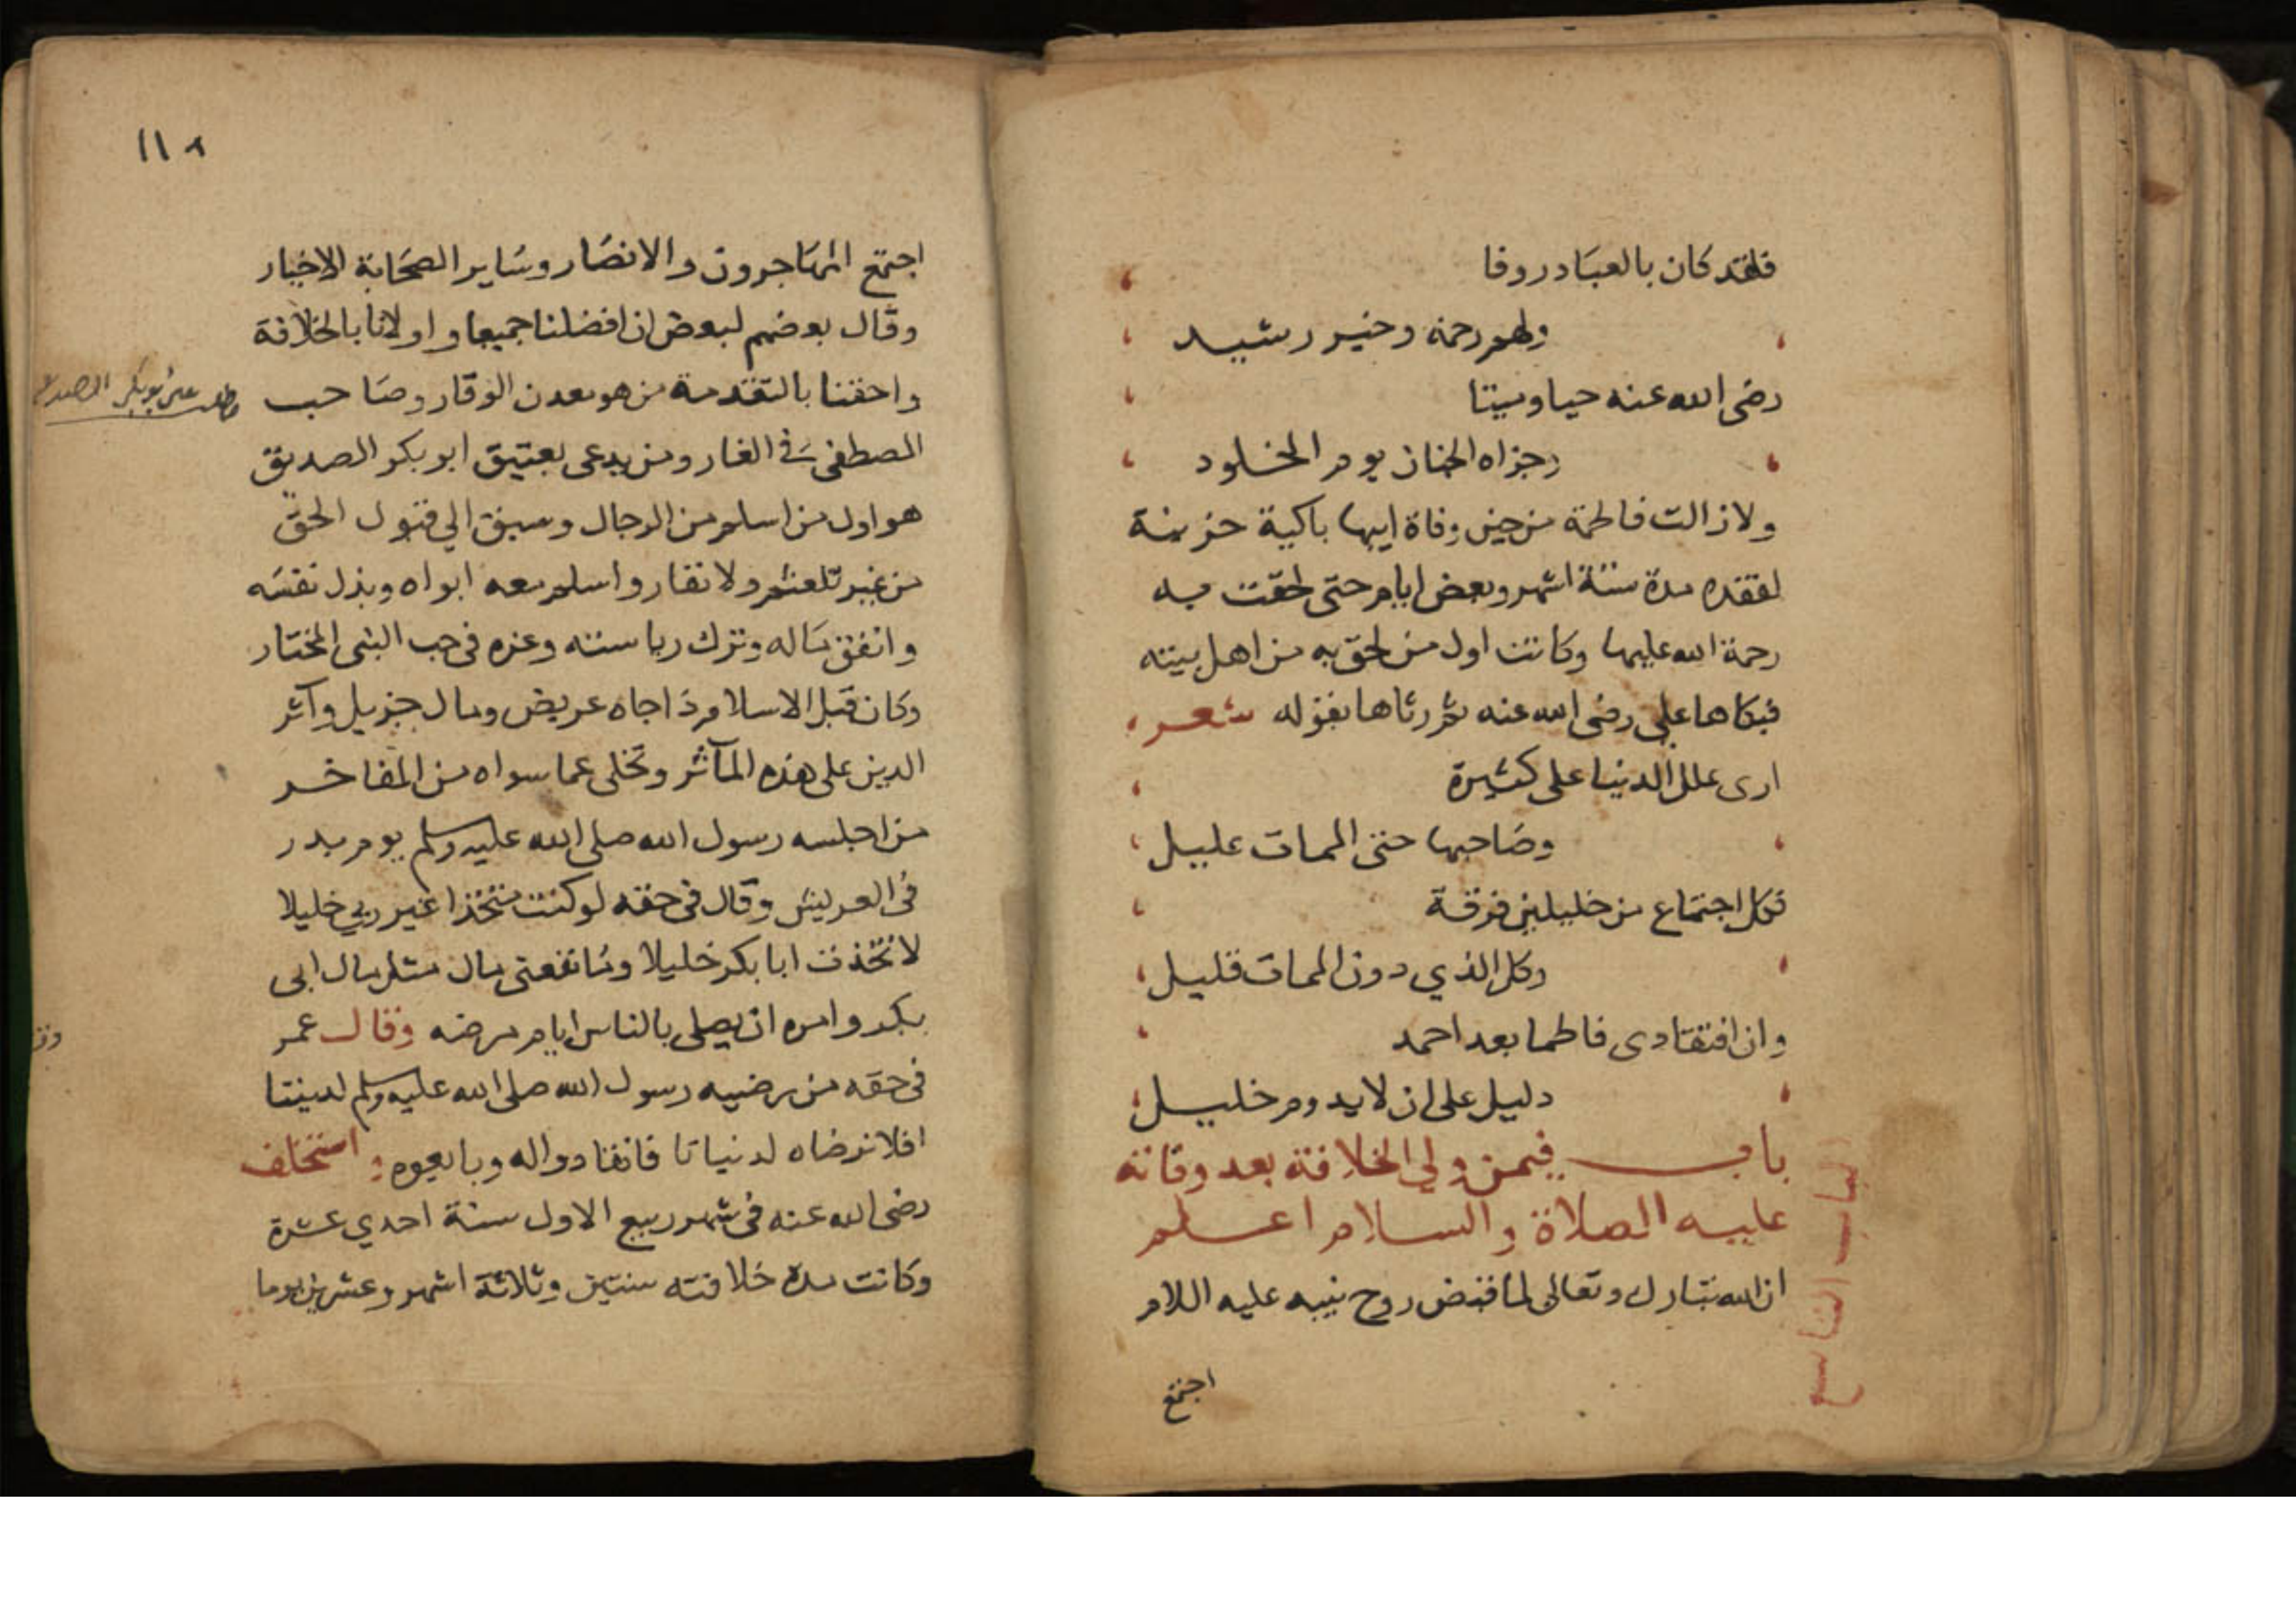 فلقد كان بالعباد روفا
ولهم رحمة وخير رشيد
رضى الله عنه حيا وميتا
وجزاه الجنان يوم الخلود
ولا زالت فاطمة من حين وفاة ابيها باكية حزينة
لفقده مدة ستة اشهر وبعض ايام حتى لحقت به
رحمة الله عليهما وكانت اول من لحق به من اهل بيته
فبكاها علي رضى الله عنه ثم رثاها بقوله شعر
ارى علل الدنيا على كثيرة
وصاحبها حتى الممات عليل
فكل اجتماع من خليلين فرقة
وكل الذي دون الممات قليل
وان افتقادى فاطما بعد احمد
دليل على ان لا يدوم خليل
باب فيمن ولى الخلافة بعد وفاته
عليه الصلاة والسلام اعلم
ان الله تبارك وتعالى لما قبض روح نبيه عليه اللام
اجتمع
الباب التاسع
١١٨
اجتمع المهاجرون والانصار وساير الصحابة الاخيار
وقال بعضهم لبعض ان افضلنا جميعا واولانا بالخلافة
واحقنا بالتقدمة من هو معدن الوقار وصاحب
المصطفى في الغار ومن يدعى بعتيق ابو بكر الصديق
هو اول من اسلم من الرجال وسبق الي قبول الحق
من غير تلعثم ولا نفار واسلم معه ابواه وبذل نفسه
وانفق ماله وترك رياسته وعزه في حب النبى المختار
وكان قبل الاسلام ذا جاه عريض ومال جزيل وآثر
الدين على هذه المآثر وتخلى عما سواه من المفاخر
من اجلسه رسول الله صلى الله عليه وسلم يوم بدر
في العريش وقال في حقه لو كنت متخذا غير ربي خليلا
لاتخذت ابا بكر خليلا وما نفعنى مال مثل مال ابى
بكر وامره ان يصلى بالناس ايام مرضه وقال عمر
في حقه من رضيه رسول الله صلى الله عليه وسلم لديننا
افلا نرضاه لدنيانا فانقادوا له وبايعوه استخلف
رضى الله عنه في شهر ربيع الاول سنة احدي عشرة
وكانت مدة خلافته سنتين وثلاثة اشهر وعشرين يوما